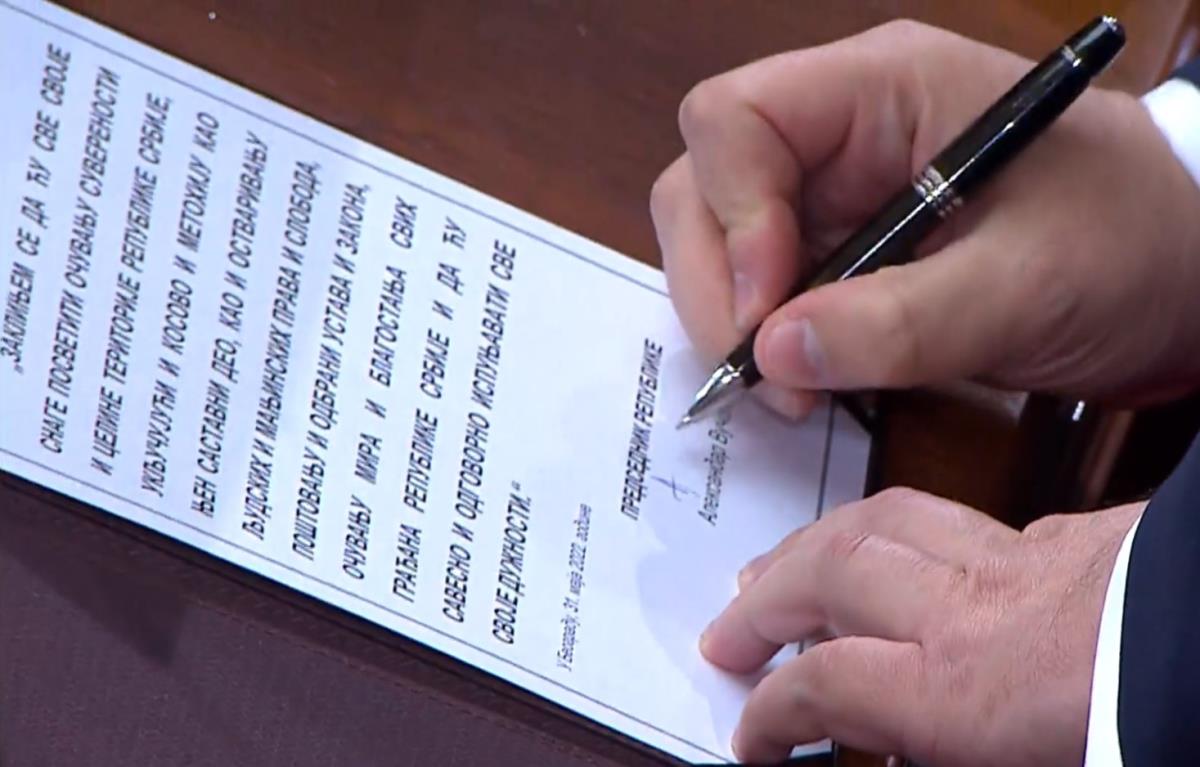 „ЗАКЛИЊЕМ СЕ ДА ЋУ СВЕ СВОЈЕ
СНАГЕ ПОСВЕТИТИ ОЧУВАЊУ СУВЕРЕНОСТИ
И ЦЕЛИНЕ ТЕРИТОРИЈЕ РЕПУБЛИКЕ СРБИЈЕ,
УКЉУЧУЈУЋИ И КОСОВО И МЕТОХИЈУ КАО
ЊЕН САСТАВНИ ДЕО, КАО И ОСТВАРИВАЊУ
ЉУДСКИХ И МАЊИНСКИХ ПРАВА И СЛОБОДА,
ПОШТОВАЊУ И ОДБРАНИ УСТАВА И ЗАКОНА,
ОЧУВАЊУ МИРА И БЛАГОСТАЊА СВИХ
ГРАЂАНА РЕПУБЛИКЕ СРБИЈЕ И ДА ЋУ
САВЕСНО И ОДГОВОРНО ИСПУЊАВАТИ СВЕ
СВОЈЕ ДУЖНОСТИ.“
У Београду, 31. маја 2022. године
ПРЕДСЕДНИК РЕПУБЛИКЕ
Александар